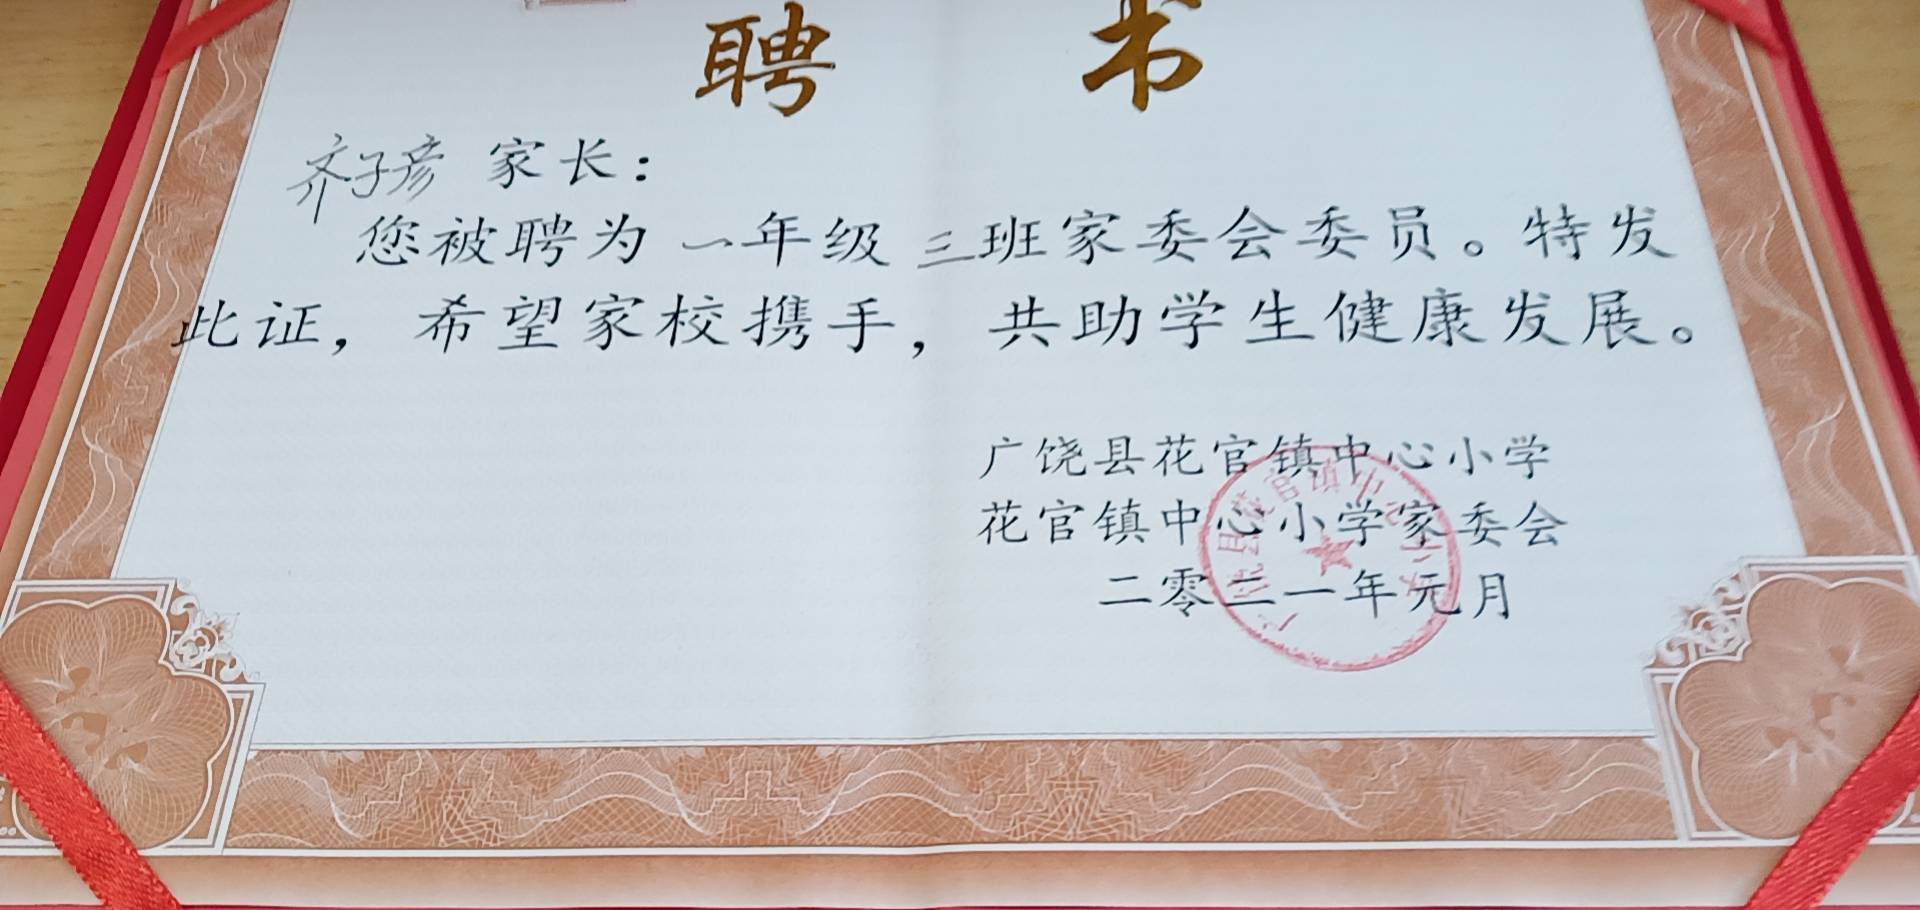 聘 书
齐子彦 家长：
您被聘为 一年级 三班家委会委员。特发
此证，希望家校携手，共助学生健康发展。
广饶县花官镇中心小学
花官镇中心小学家委会
二零二一年元月
广饶县花官镇中心小学